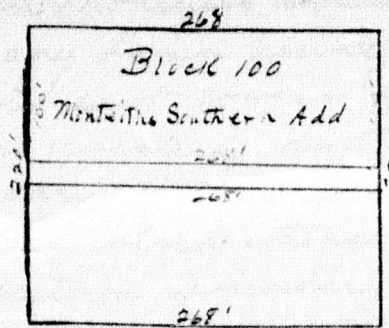 268
Block 100
Monteiths Southern Add
268'
268'
220'
268'